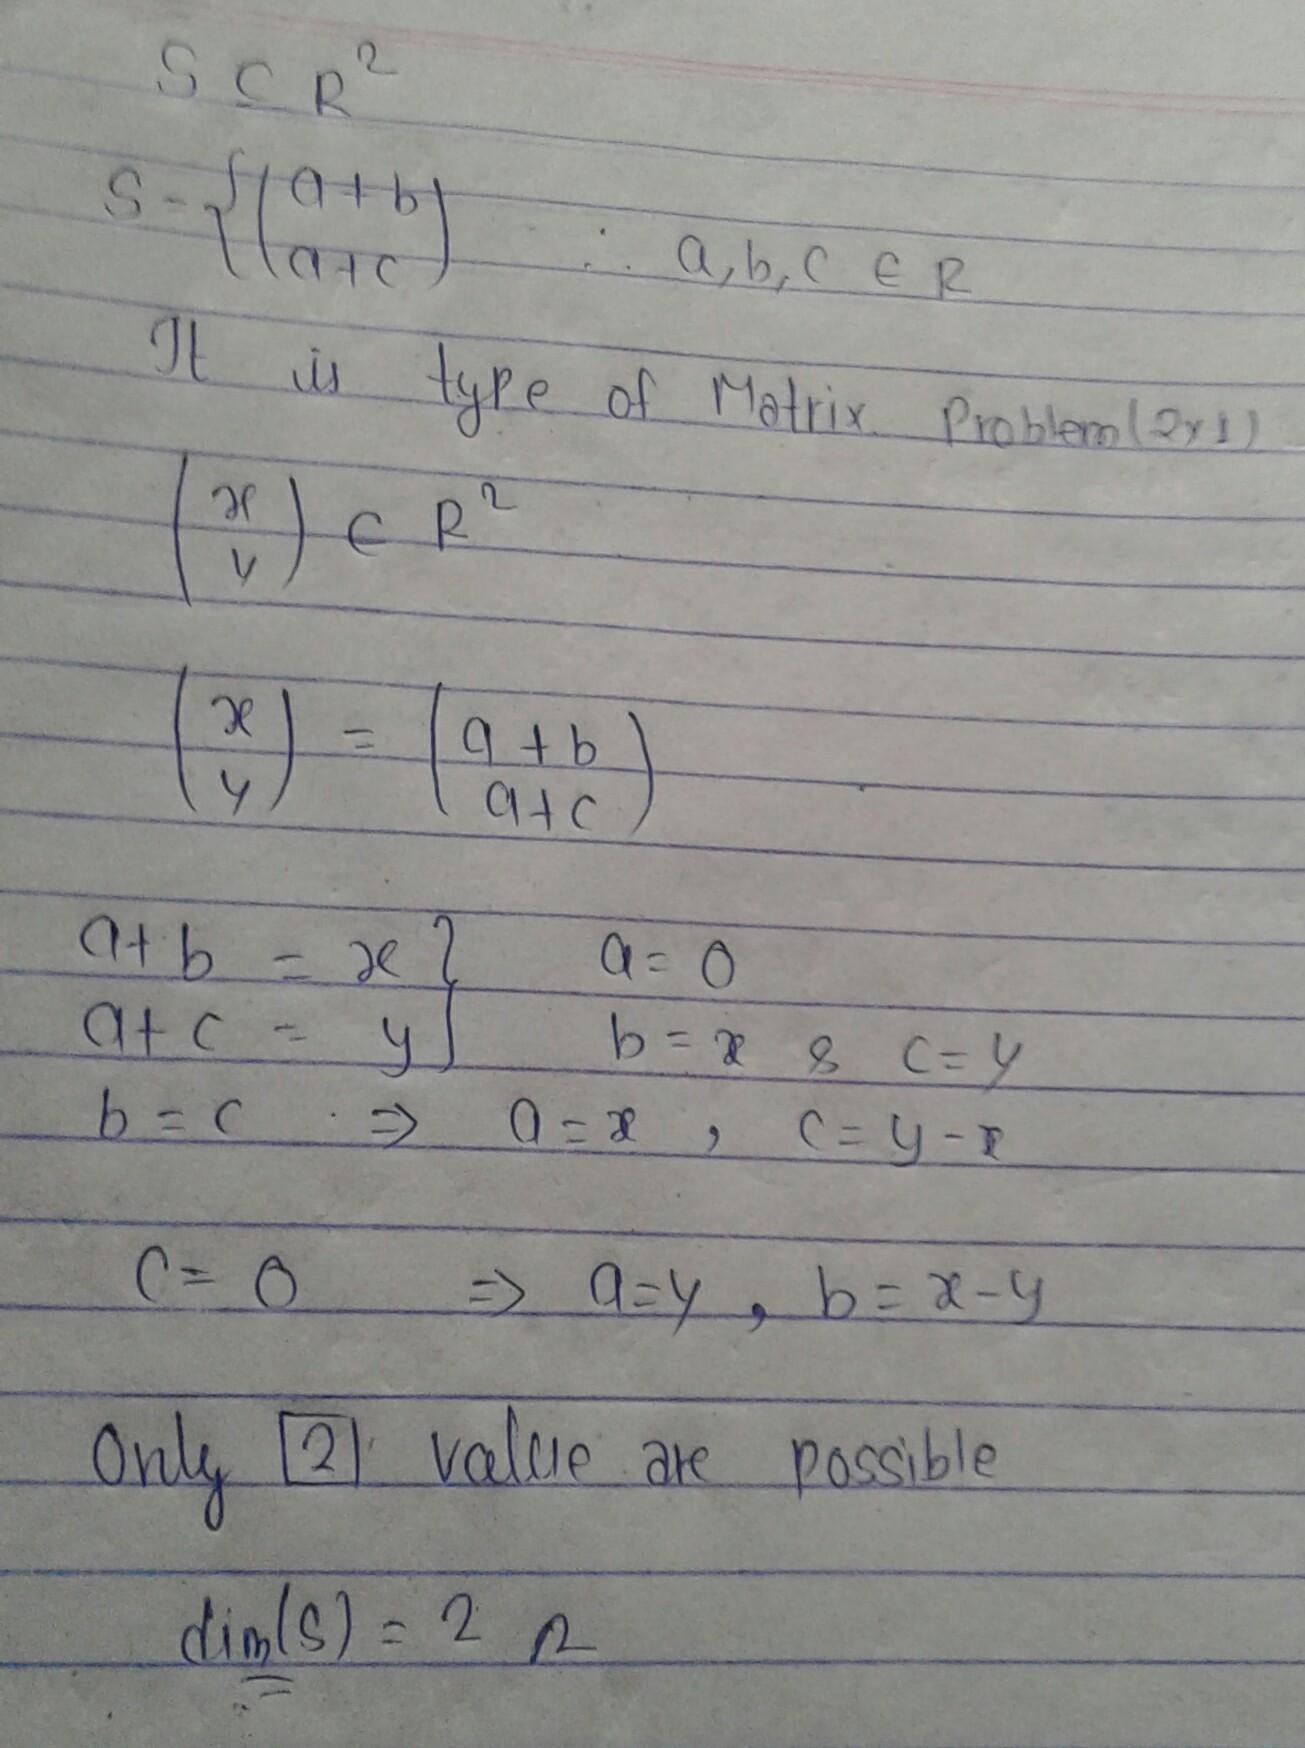 S ⊆ R²
S = {(a+b
a+c) ∴ a, b, c ∈ R
It is type of Matrix Problem (2x1)
(x
y) ∈ R²
(x
y) = (a+b
a+c)
a+b = x } a = 0
a+c = y } b = x & c = y
b = c ⇒ a = x , c = y-x
c = 0 ⇒ a = y , b = x-y
Only 2 value are possible
dim(S) = 2